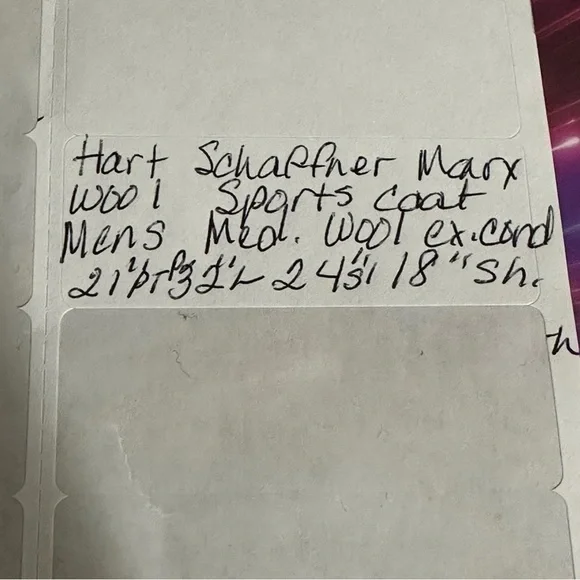 Hart Schaffner Marx
Wool Sports coat
Mens Med. Wool ex.cond
21" 24" 18" sh.